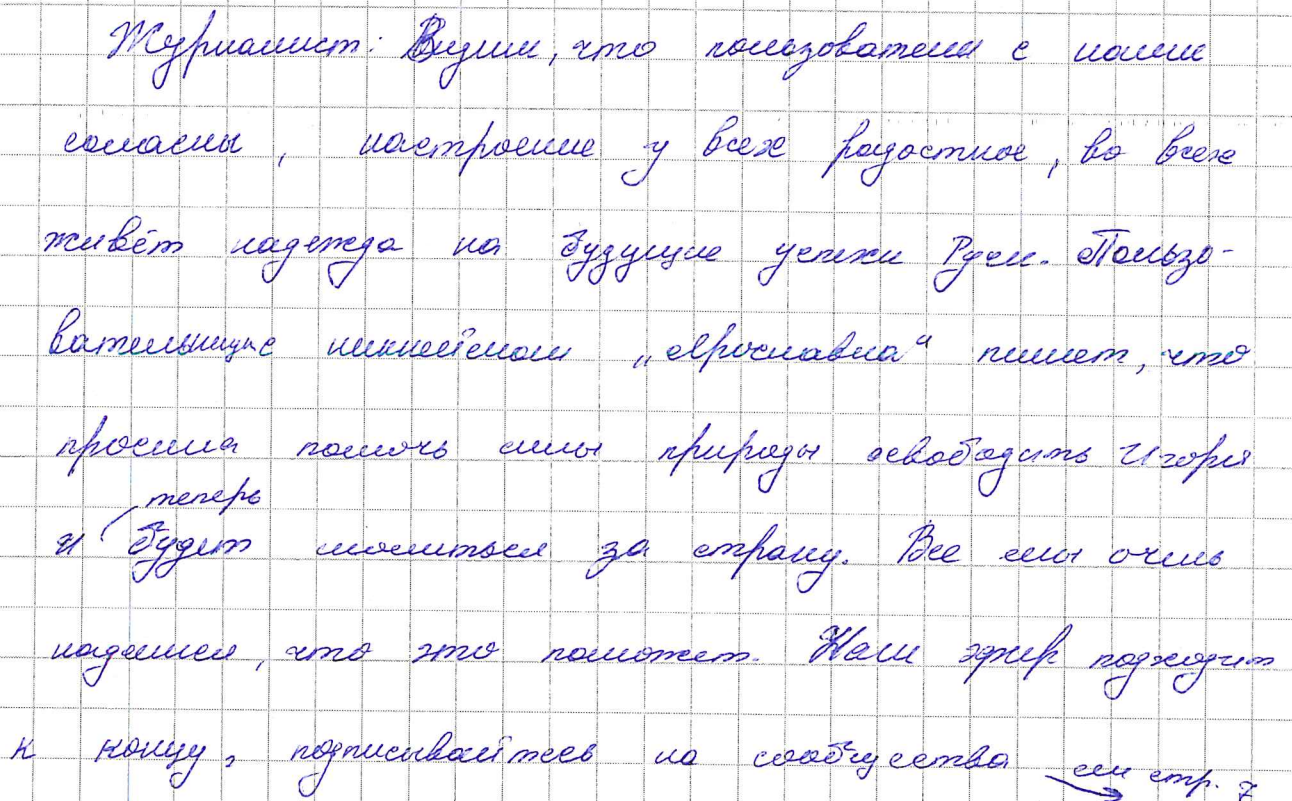 Журналист: Видим, что пользователи с нами
согласны, настроение у всех радостное, во всех
живёт надежда на будущие успехи Руси. Пользо-
вательница с никнеймом „Ярославна“ пишет, что
просила помочь силы природы освободить Игоря
теперь
и будет молиться за страну. Все мы очень
надеемся, что это поможет. Наш эфир подходит
к концу, подписывайтесь на сообщества см стр. 7